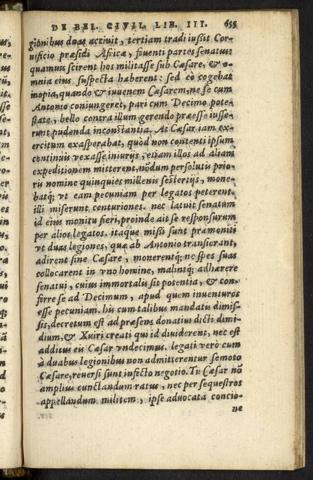 DE BEL. CIVIL. LIB. III. 655
gionibus duas acciuit, tertiam tradi iussit Cor-
nificio præsidi Africæ, fouenti partes senatus
quamuis scirent hos militasse sub Cæsare, & o-
mnia eius suspecta haberent: sed eò cogebat
inopia, quando & iuuenem Cæsarem, ne se cum
Antonio coniungeret, pari cum Decimo pote-
state, bello contra illum gerendo præesse iusse-
runt, pudenda inconstantia. At Cæsar iam ex-
ercitum exasperabat, quòd non contenti ipsum
continuis vexasse iniurijs, etiam illos ad aliam
expeditionem mitterent, nõdum persolutis prio-
ris nomine quinquies millenis sestertijs, mone-
batq; vt eam pecuniam per legatos peterent.
illi miserunt centuriones. nec latuit senatum
id eius monitu fieri, proinde ait se responsurum
per alios legatos. itaque misit sunt præmoniti
vt duas legiones, quæ ab Antonio transierant,
adirent sine Cæsare, monerentq; ne spes suas
collocarent in vno homine, malintq; adhærere
senatui, cuius immortalis sit potentia, & con-
firre se ad Decimum, apud quem inuenturos
esse pecuniam. his cum talibus mandatis dimis-
sis, decretum est ad præsens donatiui dicti dimi-
dium, & Xuiri creati qui id diuiderent, nec est
additus eis Cæsar vndecimus. legati verò cum
à duabus legionibus non admitterentur semoto
Cæsare, reuersi sunt infecto negotio. Tũ Cæsar nõ
amplius cunctandum ratus, nec per sequestros
appellandum militem, ipse aduocata concio-
ne